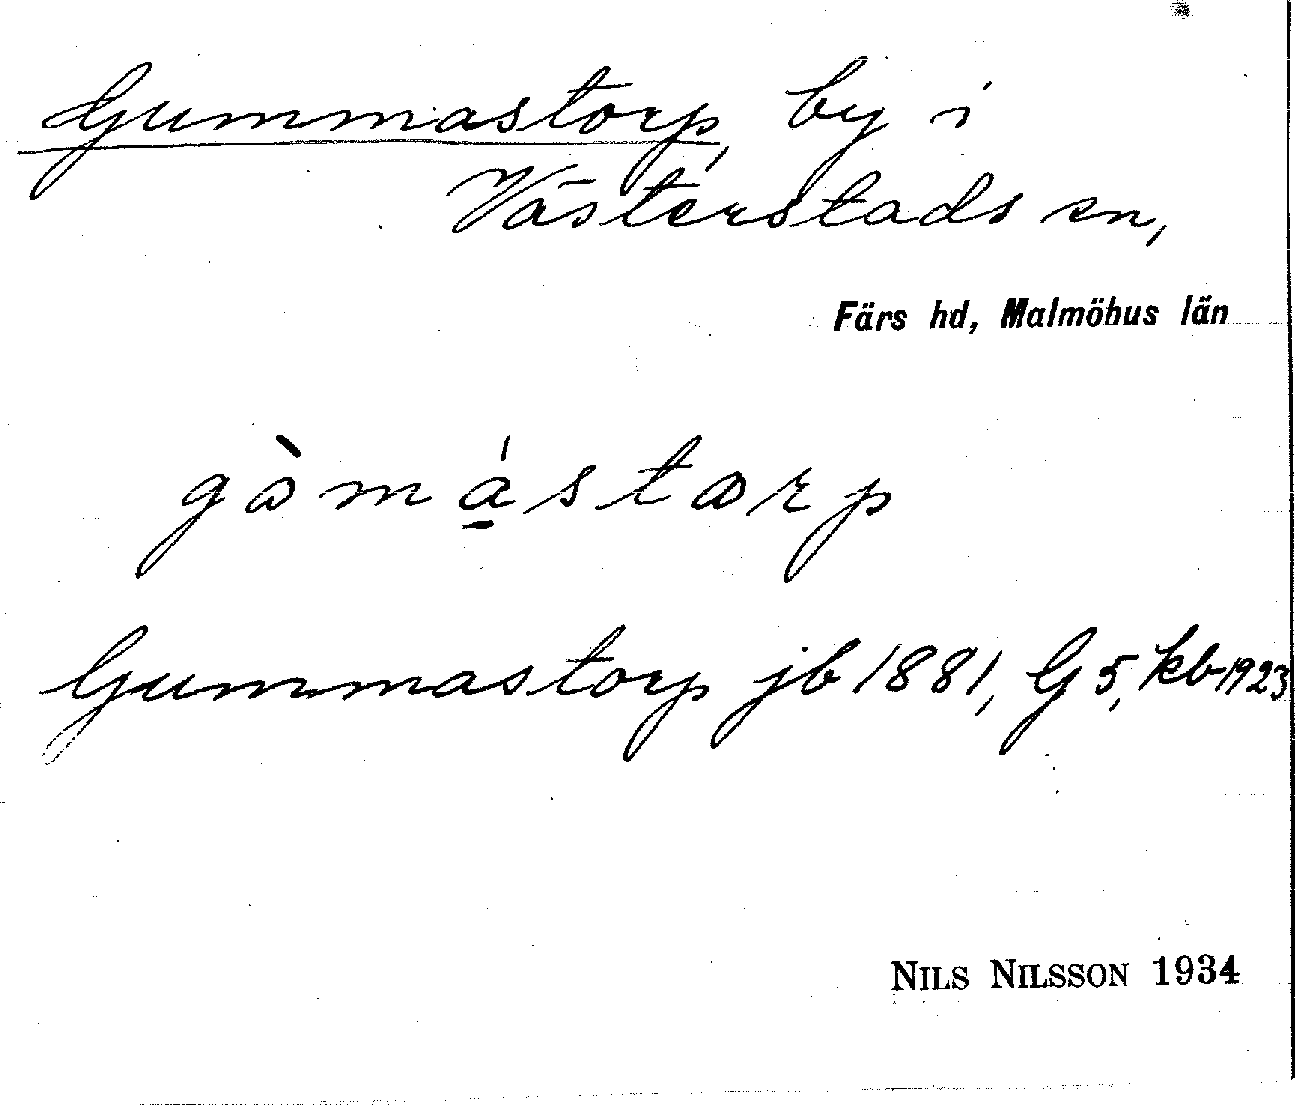 Gummastorp, by i
Västerstads sn,
Färs hd, Malmöhus län
gòmá̱storp
Gummastorp jb 1881, G 5, kb 1923
NILS NILSSON 1934